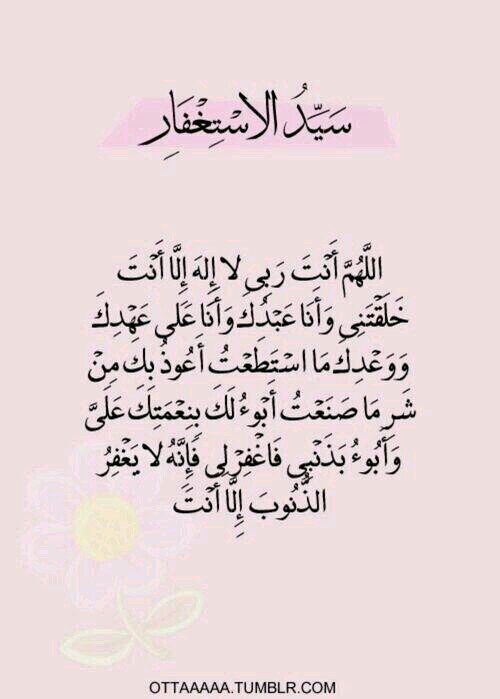 سَيِّدُ الاسْتِغْفَارِ
اللَّهُمَّ أَنْتَ رَبِي لا إِلهَ إِلَّا أَنْتَ
خَلَقْتَنِي وَأَنَا عَبْدُكَ وَأَنَا عَلَى عَهْدِكَ
وَوَعْدِكَ مَا اسْتَطَعْتُ أَعُوذُ بِكَ مِنْ
شَرِ مَا صَنَعْتُ أَبُوءُ لَكَ بِنِعْمَتِكَ عَلَىَّ
وَأَبُوءُ بَذَنْبِي فَاغْفِرْ لِي فَإِنَّهُ لا يَغْفِرُ
الذُّنُوبَ إِلَّا أَنْتَ
OTTAAAAA.TUMBLR.COM